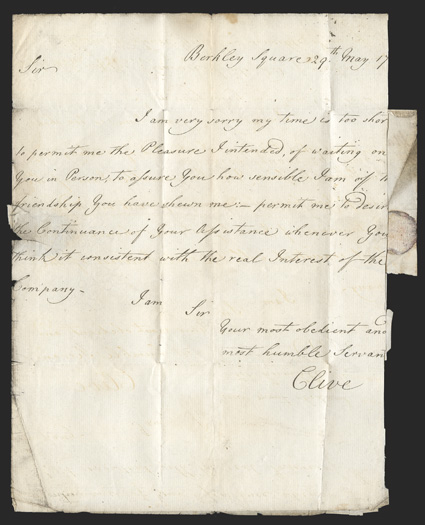 Berkley Square 29th May 17
Sir
I am very sorry my time is too shor
to permit me the Pleasure I intended, of waiting on
You in Person, to assure You how sensible I am of
friendship You have shewn me:– permit me to desir
the Continuance of Your Assistance whenever You
think it consistent with the real Interest of the
Company–
I am
Sir
Your most obedient and
most humble Servan
Clive